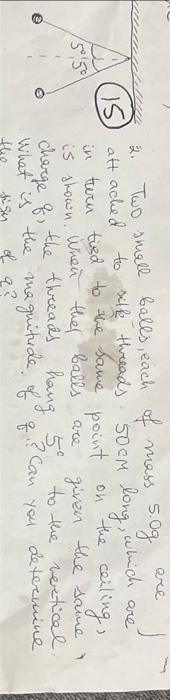 5° 5°
15
2. Two small balls, each of mass 5.0g are
attached to silk threads 50cm long, which are
in turn tied to the same point on the ceiling,
is shown. When the balls are given the same
charge q, the threads hang 5° to the vertical.
What is the magnitude of q? Can you determine
the sign of q?